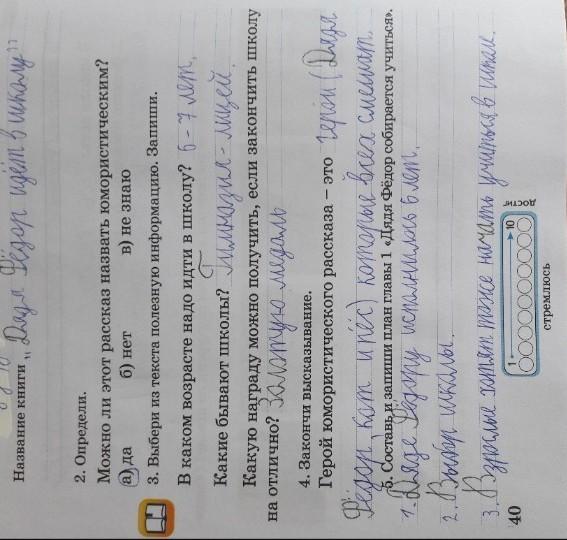 Название книги „Дядя Фёдор идёт в школу"
2. Определи.
Можно ли этот рассказ назвать юмористическим?
а) да б) нет в) не знаю
3. Выбери из текста полезную информацию. Запиши.
В каком возрасте надо идти в школу? 6 - 7 лет.
Какие бывают школы? Гимназия - лицей.
Какую награду можно получить, если закончить школу
на отлично? Золотую медаль
4. Закончи высказывание.
Герой юмористического рассказа – это герои (Дядя
Фёдор, кот и пёс) которые всех смешат.
5. Составь и запиши план главы 1 «Дядя Фёдор собирается учиться».
1. Дяде Фёдору исполнилось 6 лет.
2. Выбор школы.
3. Взрослые хотят тоже начать учиться в школе.
1 10
стремлюсь
40